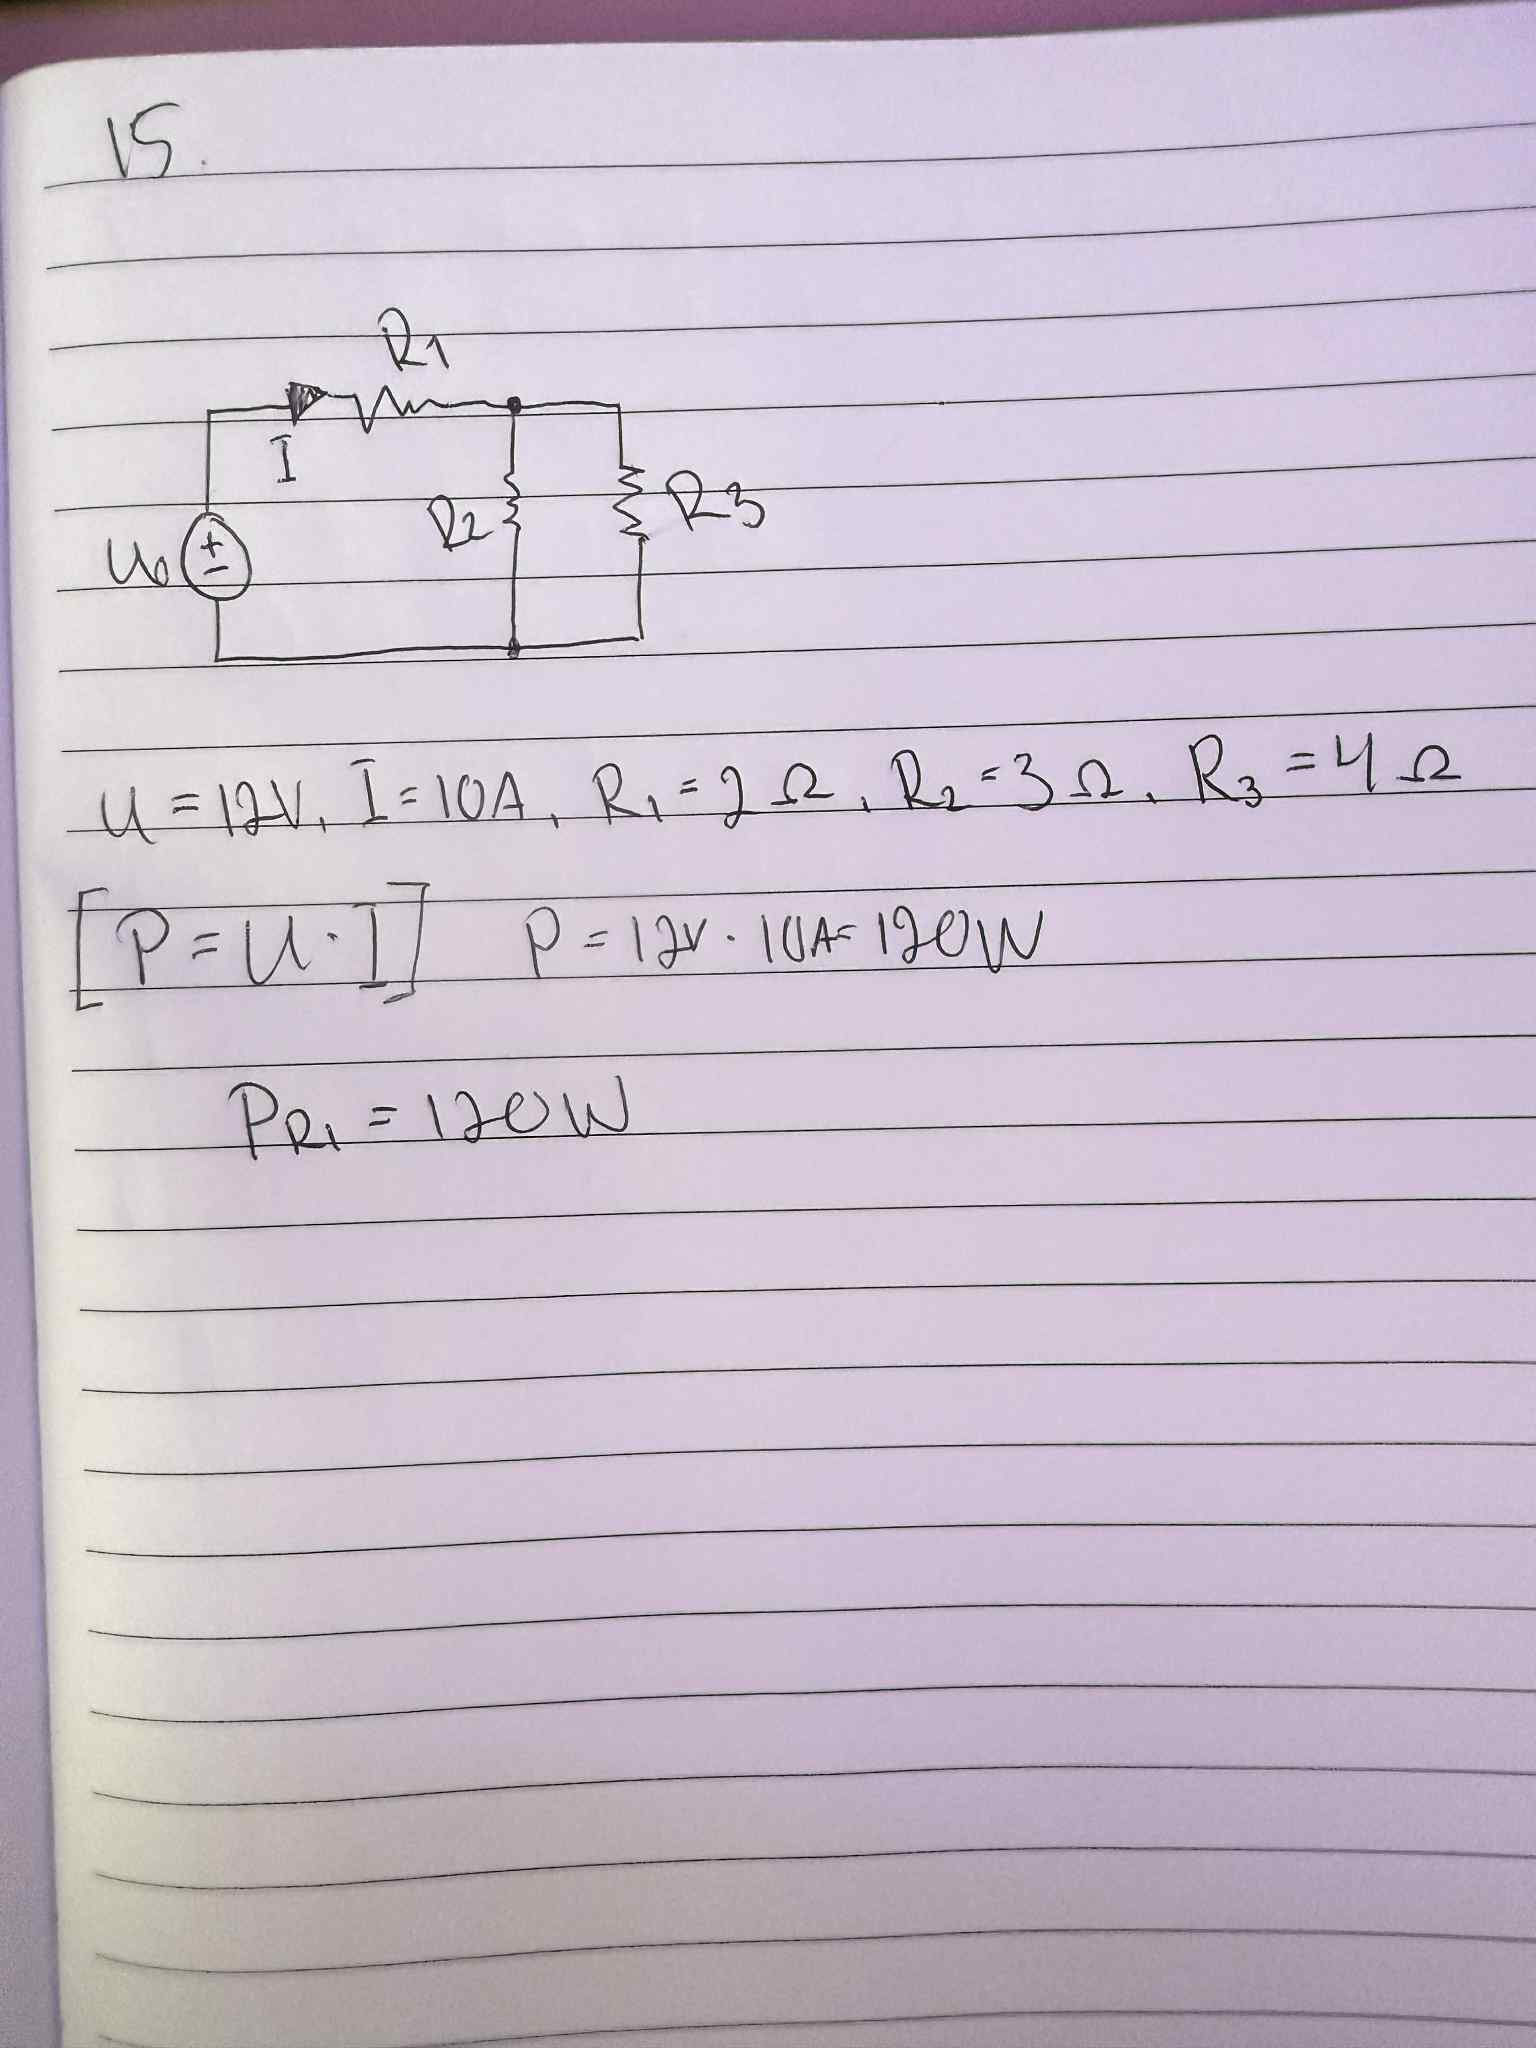 15.
R1
I
R2
R3
U0
+
-
U = 12V, I = 10A, R1 = 2 Ω, R2 = 3 Ω, R3 = 4 Ω
[P = U · I] P = 12V · 10A = 120W
PR1 = 120W